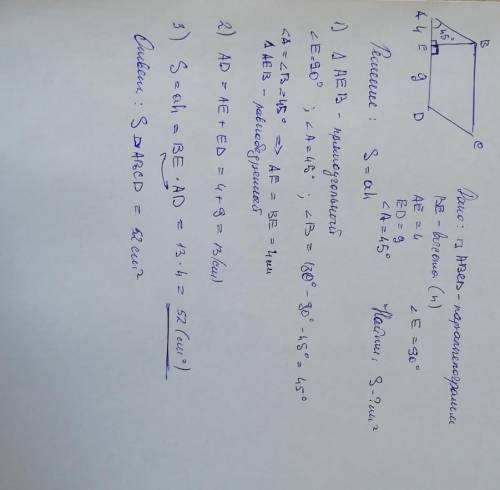 B
45°
A 4 E 9 D
C
Дано: ▱ ABCD - параллелограмм
BE - высота (h)
AE = 4 ∠E = 90°
ED = 9
∠A = 45° Найти: S - ? см²
Решение: S = ah
1) Δ AEB - прямоугольный
∠E = 90° ; ∠A = 45° ; ∠B = 180° - 90° - 45° = 45°
∠A = ∠B = 45° => AE = BE = 4 см
Δ AEB - равнобедренный
2) AD = AE + ED = 4 + 9 = 13 (см)
3) S = ah = BE · AD = 13 · 4 = 52 (см²)
Ответ: S ▱ ABCD = 52 см²